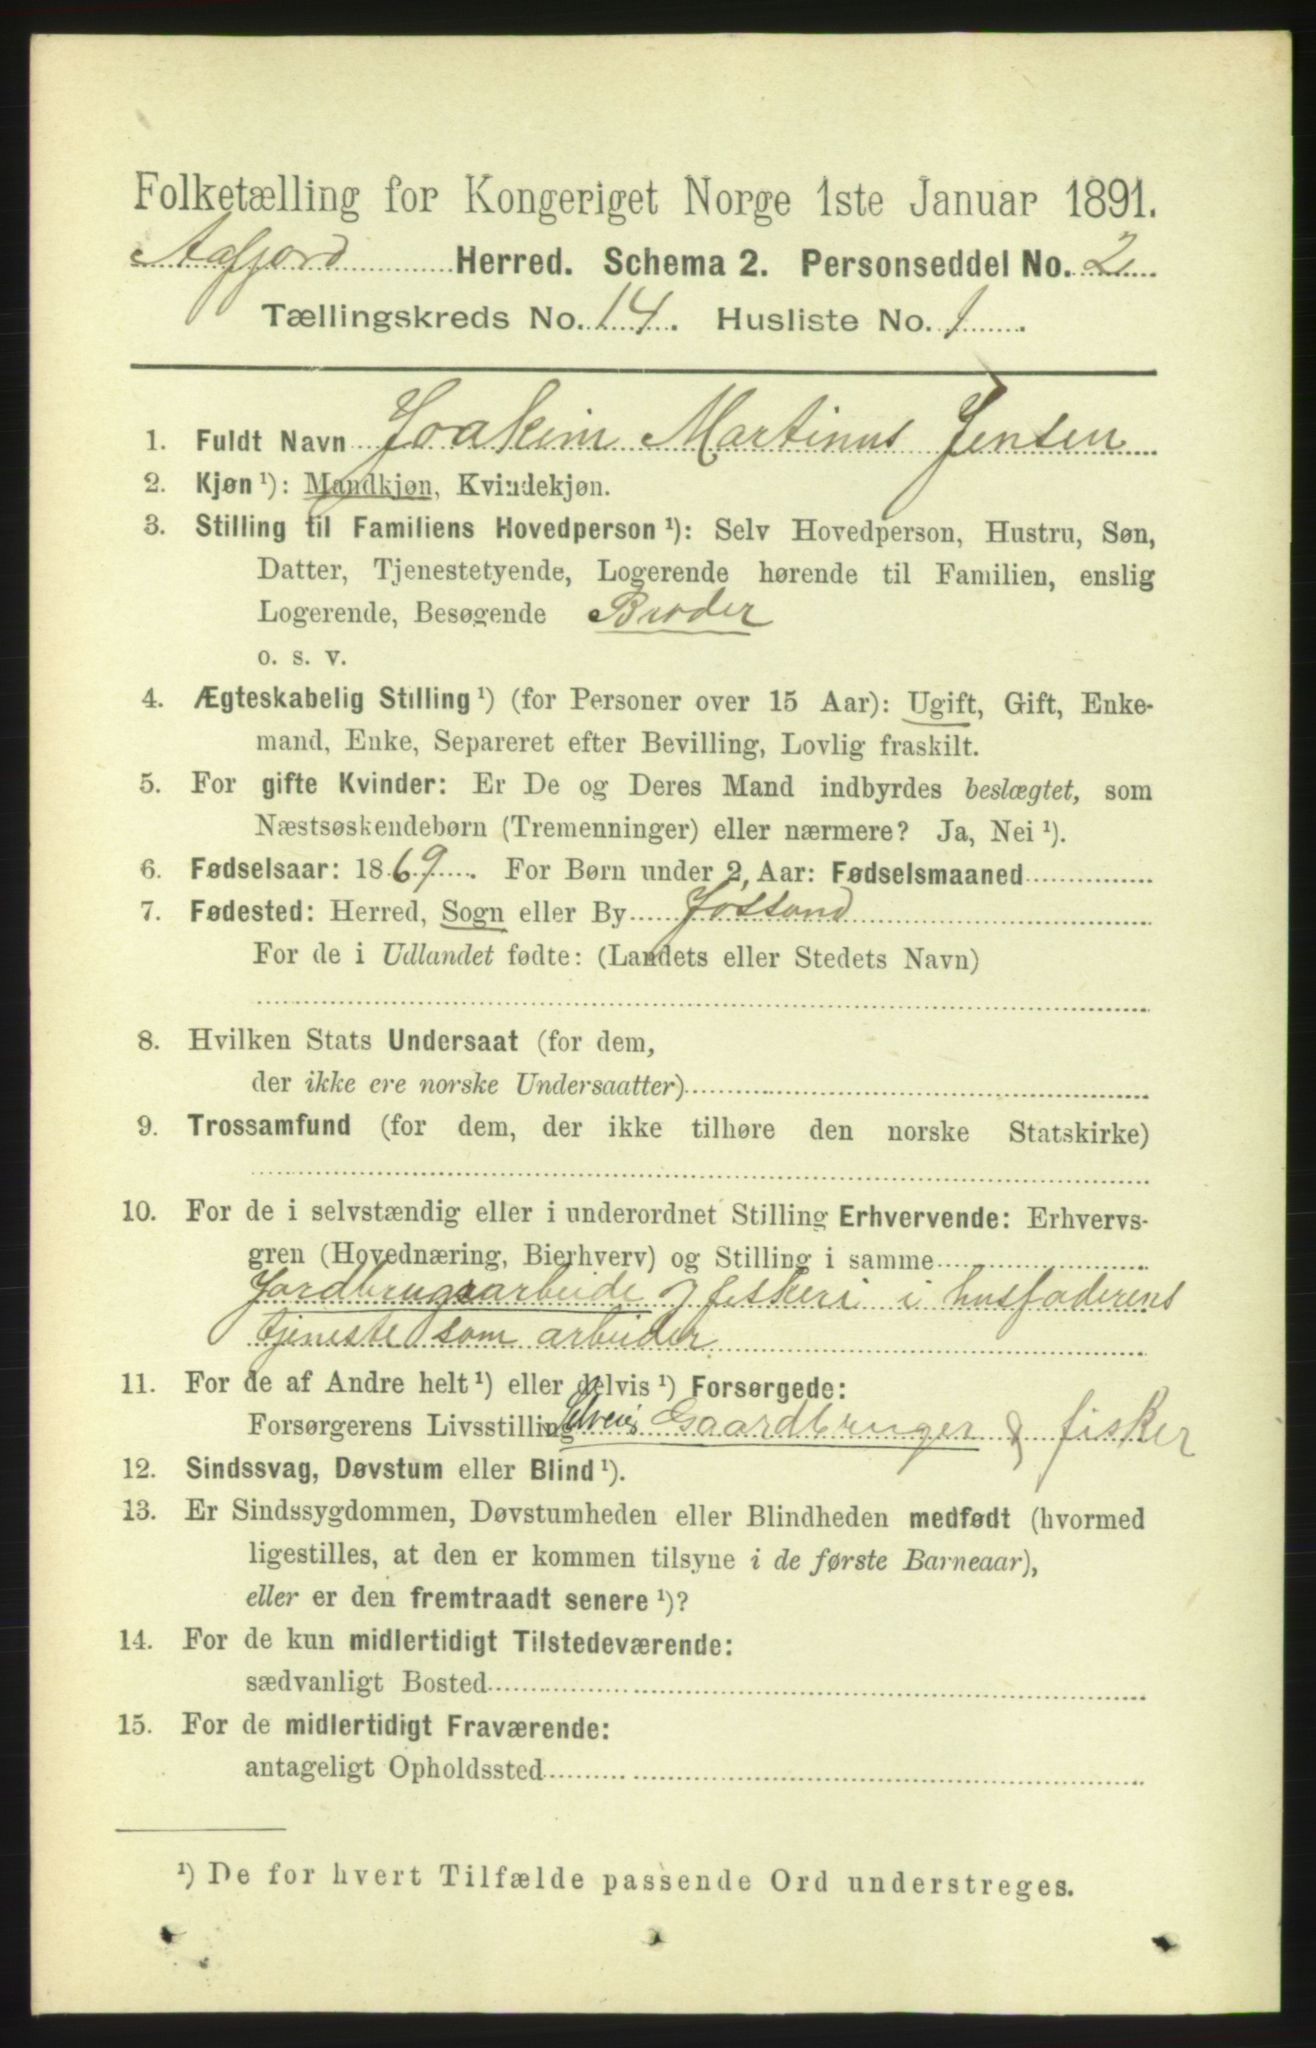 Folketælling for Kongeriget Norge 1ste Januar 1891.
Aafjord Herred. Schema 2. Personseddel No. 2
Tællingskreds No. 14. Husliste No. 1
1. Fuldt Navn Joakim Martinus Jensen
2. Kjøn ¹): Mandkjøn, Kvindekjøn.
3. Stilling til Familiens Hovedperson ¹): Selv Hovedperson, Hustru, Søn,
Datter, Tjenestetyende, Logerende hørende til Familien, enslig
Logerende, Besøgende Broder
o. s. v.
4. Ægteskabelig Stilling ¹) (for Personer over 15 Aar): Ugift, Gift, Enke-
mand, Enke, Separeret efter Bevilling, Lovlig fraskilt.
5. For gifte Kvinder: Er De og Deres Mand indbyrdes beslægtet, som
Næstsøskendebørn (Tremenninger) eller nærmere? Ja, Nei ¹).
6. Fødselsaar: 1869. For Børn under 2 Aar: Fødselsmaaned
7. Fødested: Herred, Sogn eller By Jøssund
For de i Udlandet fødte: (Landets eller Stedets Navn)
8. Hvilken Stats Undersaat (for dem,
der ikke ere norske Undersaatter)
9. Trossamfund (for dem, der ikke tilhøre den norske Statskirke)
10. For de i selvstændig eller i underordnet Stilling Erhvervende: Erhvervs-
gren (Hovednæring, Bierhverv) og Stilling i samme
Jordbrugsarbeide & fiskeri i husfaderens
tjeneste som arbeider
11. For de af Andre helt ¹) eller delvis ¹) Forsørgede:
Forsørgerens Livsstilling Selveier Gaardbruger & fisker
12. Sindssvag, Døvstum eller Blind ¹).
13. Er Sindssygdommen, Døvstumheden eller Blindheden medfødt (hvormed
ligestilles, at den er kommen tilsyne i de første Barneaar),
eller er den fremtraadt senere ¹)?
14. For de kun midlertidigt Tilstedeværende:
sædvanligt Bosted
15. For de midlertidigt Fraværende:
antageligt Opholdssted
¹) De for hvert Tilfælde passende Ord understreges.